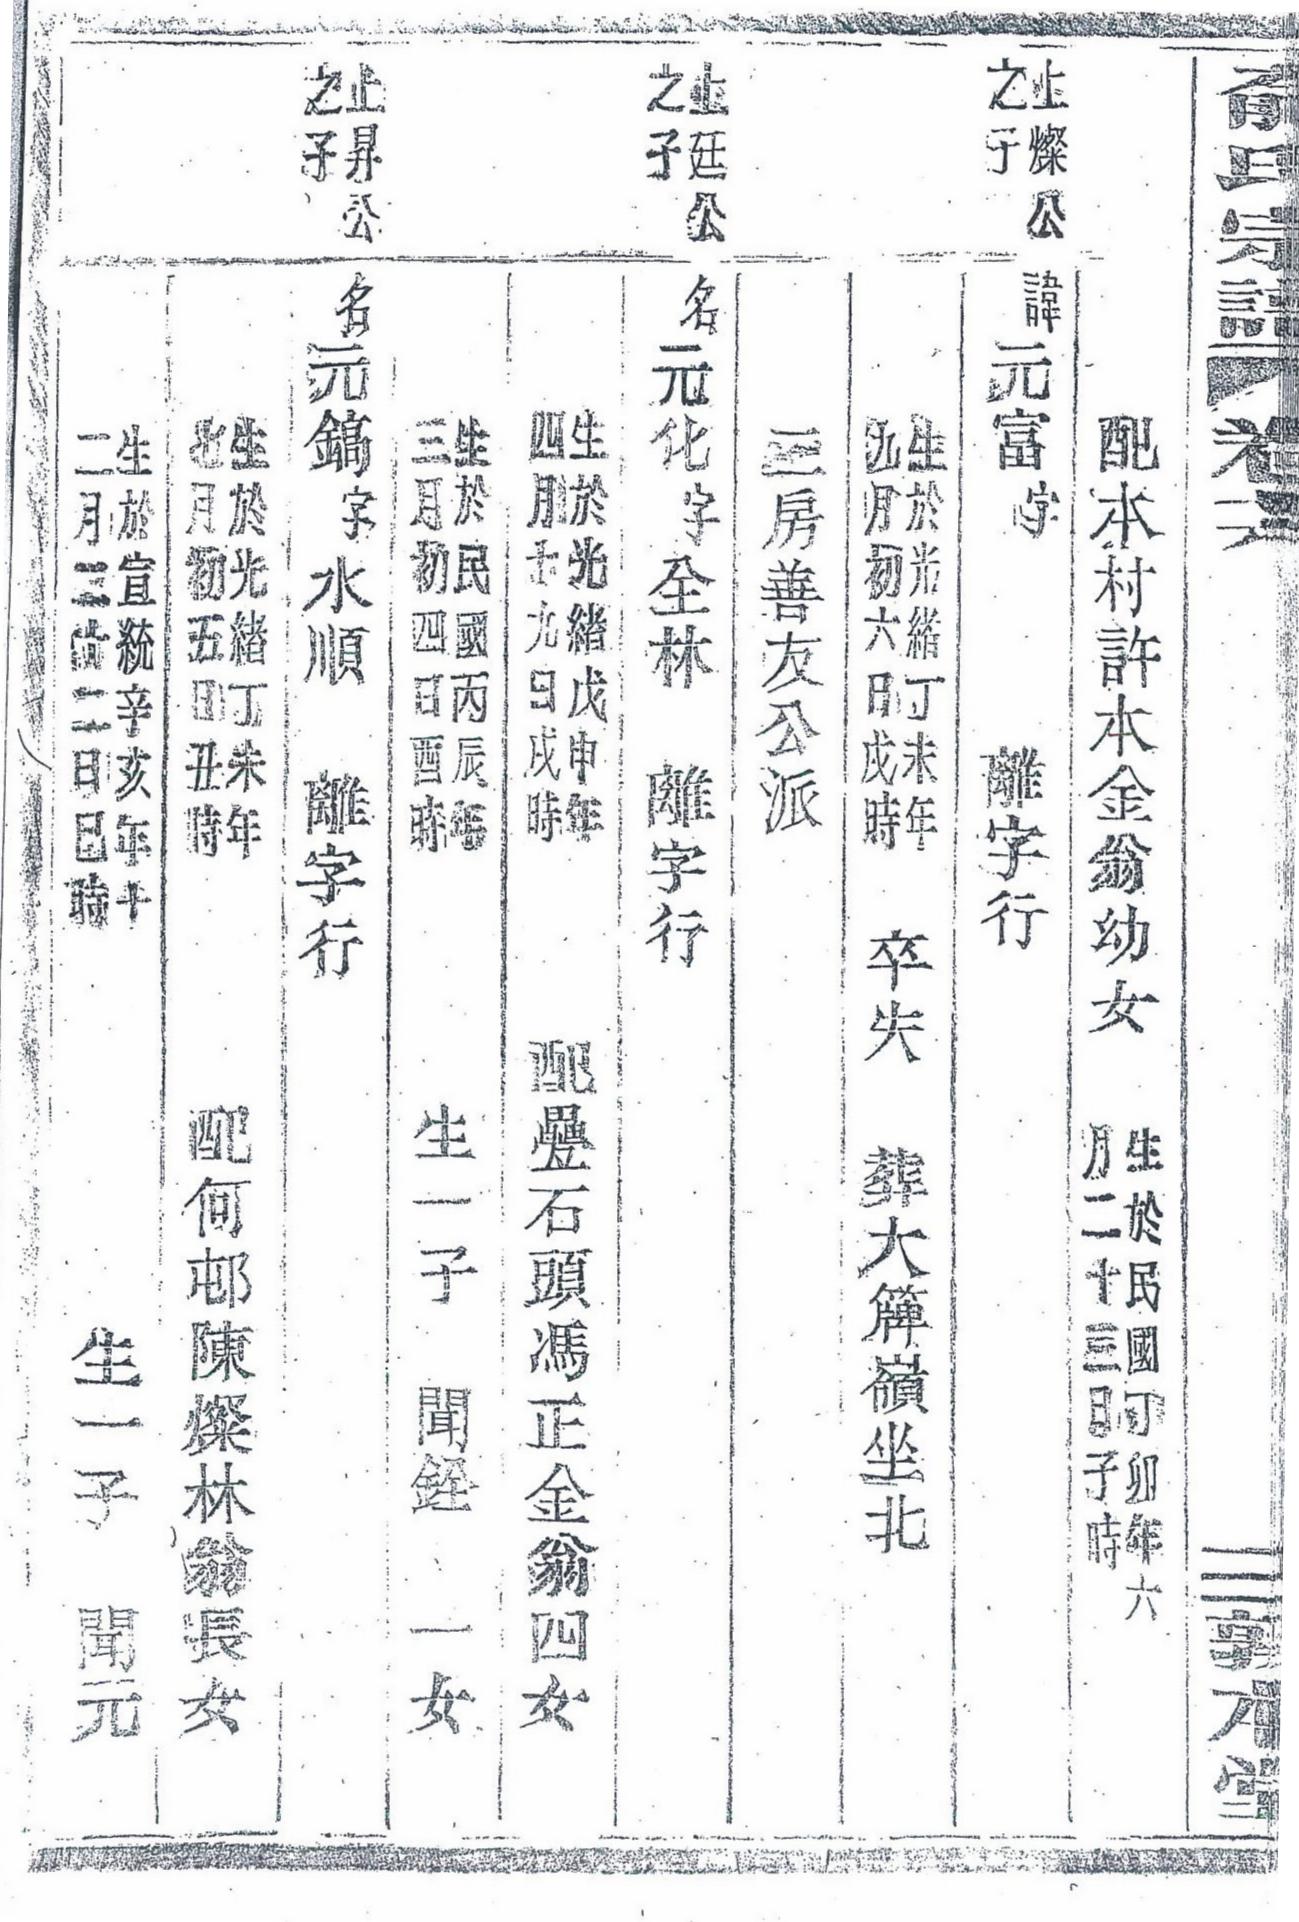 氏宗譜 卷六 三 敦本堂
配本村許本金翁幼女 生於民國丁卯年六
月二十三日子時
上燦公
之子
諱元富 字 離字行
生於光緒丁未年
九月初六日戌時
卒失 葬大簰嶺坐北
三房善友公派
上廷公
之子
名元化 字全林 離字行
生於光緒戊申年
四月十九日戌時
配疊石頭馮正金翁四女
生於民國丙辰年
三月初四日酉時
生一子 聞銓 一女
上昇公
之子
名元鎬 字水順 離字行
生於光緒丁未年
七月初五日丑時
配何邨陳燦林翁長女
生於宣統辛亥年十
二月三拾二日巳時
生一子 聞元